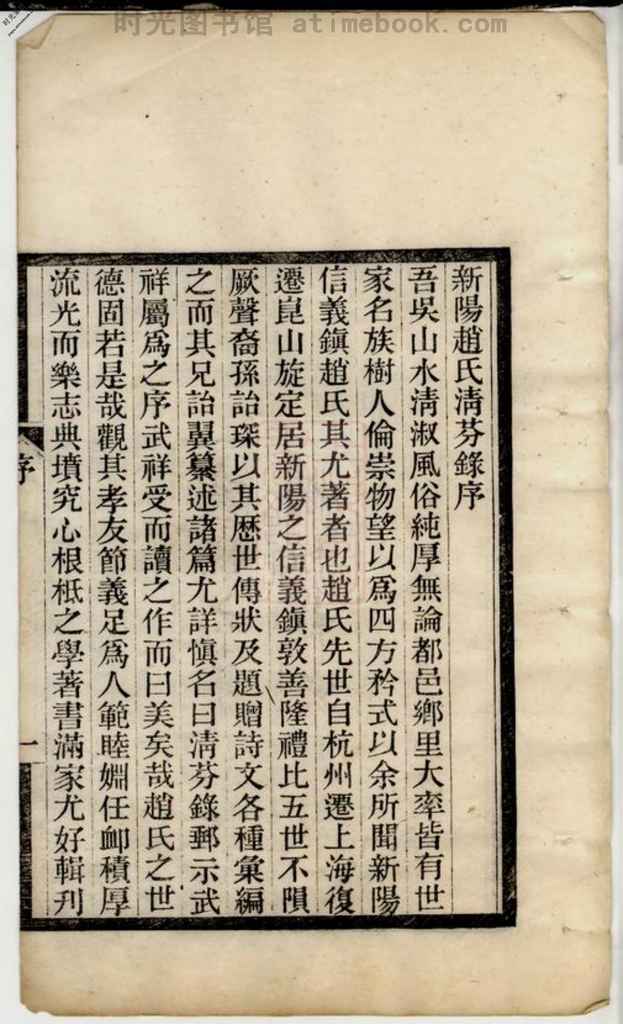 时光图书馆 atimebook.com
新陽趙氏清芬錄序
吾吳山水清淑風俗純厚無論都邑鄉里大率皆有世
家名族樹人倫崇物望以爲四方矜式以余所聞新陽
信義鎭趙氏其尤著者也趙氏先世自杭州遷上海復
遷崑山旋定居新陽之信義鎭敦善隆禮比五世不隕
厥聲裔孫詒琛以其歷世傳狀及題贈詩文各種彙編
之而其兄詒翼纂述諸篇尤詳愼名曰清芬錄郵示武
祥屬爲之序武祥受而讀之作而曰美矣哉趙氏之世
德固若是哉觀其孝友節義足爲人範睦婣任卹積厚
流光而樂志典墳究心根柢之學著書滿家尤好輯刋
序
一